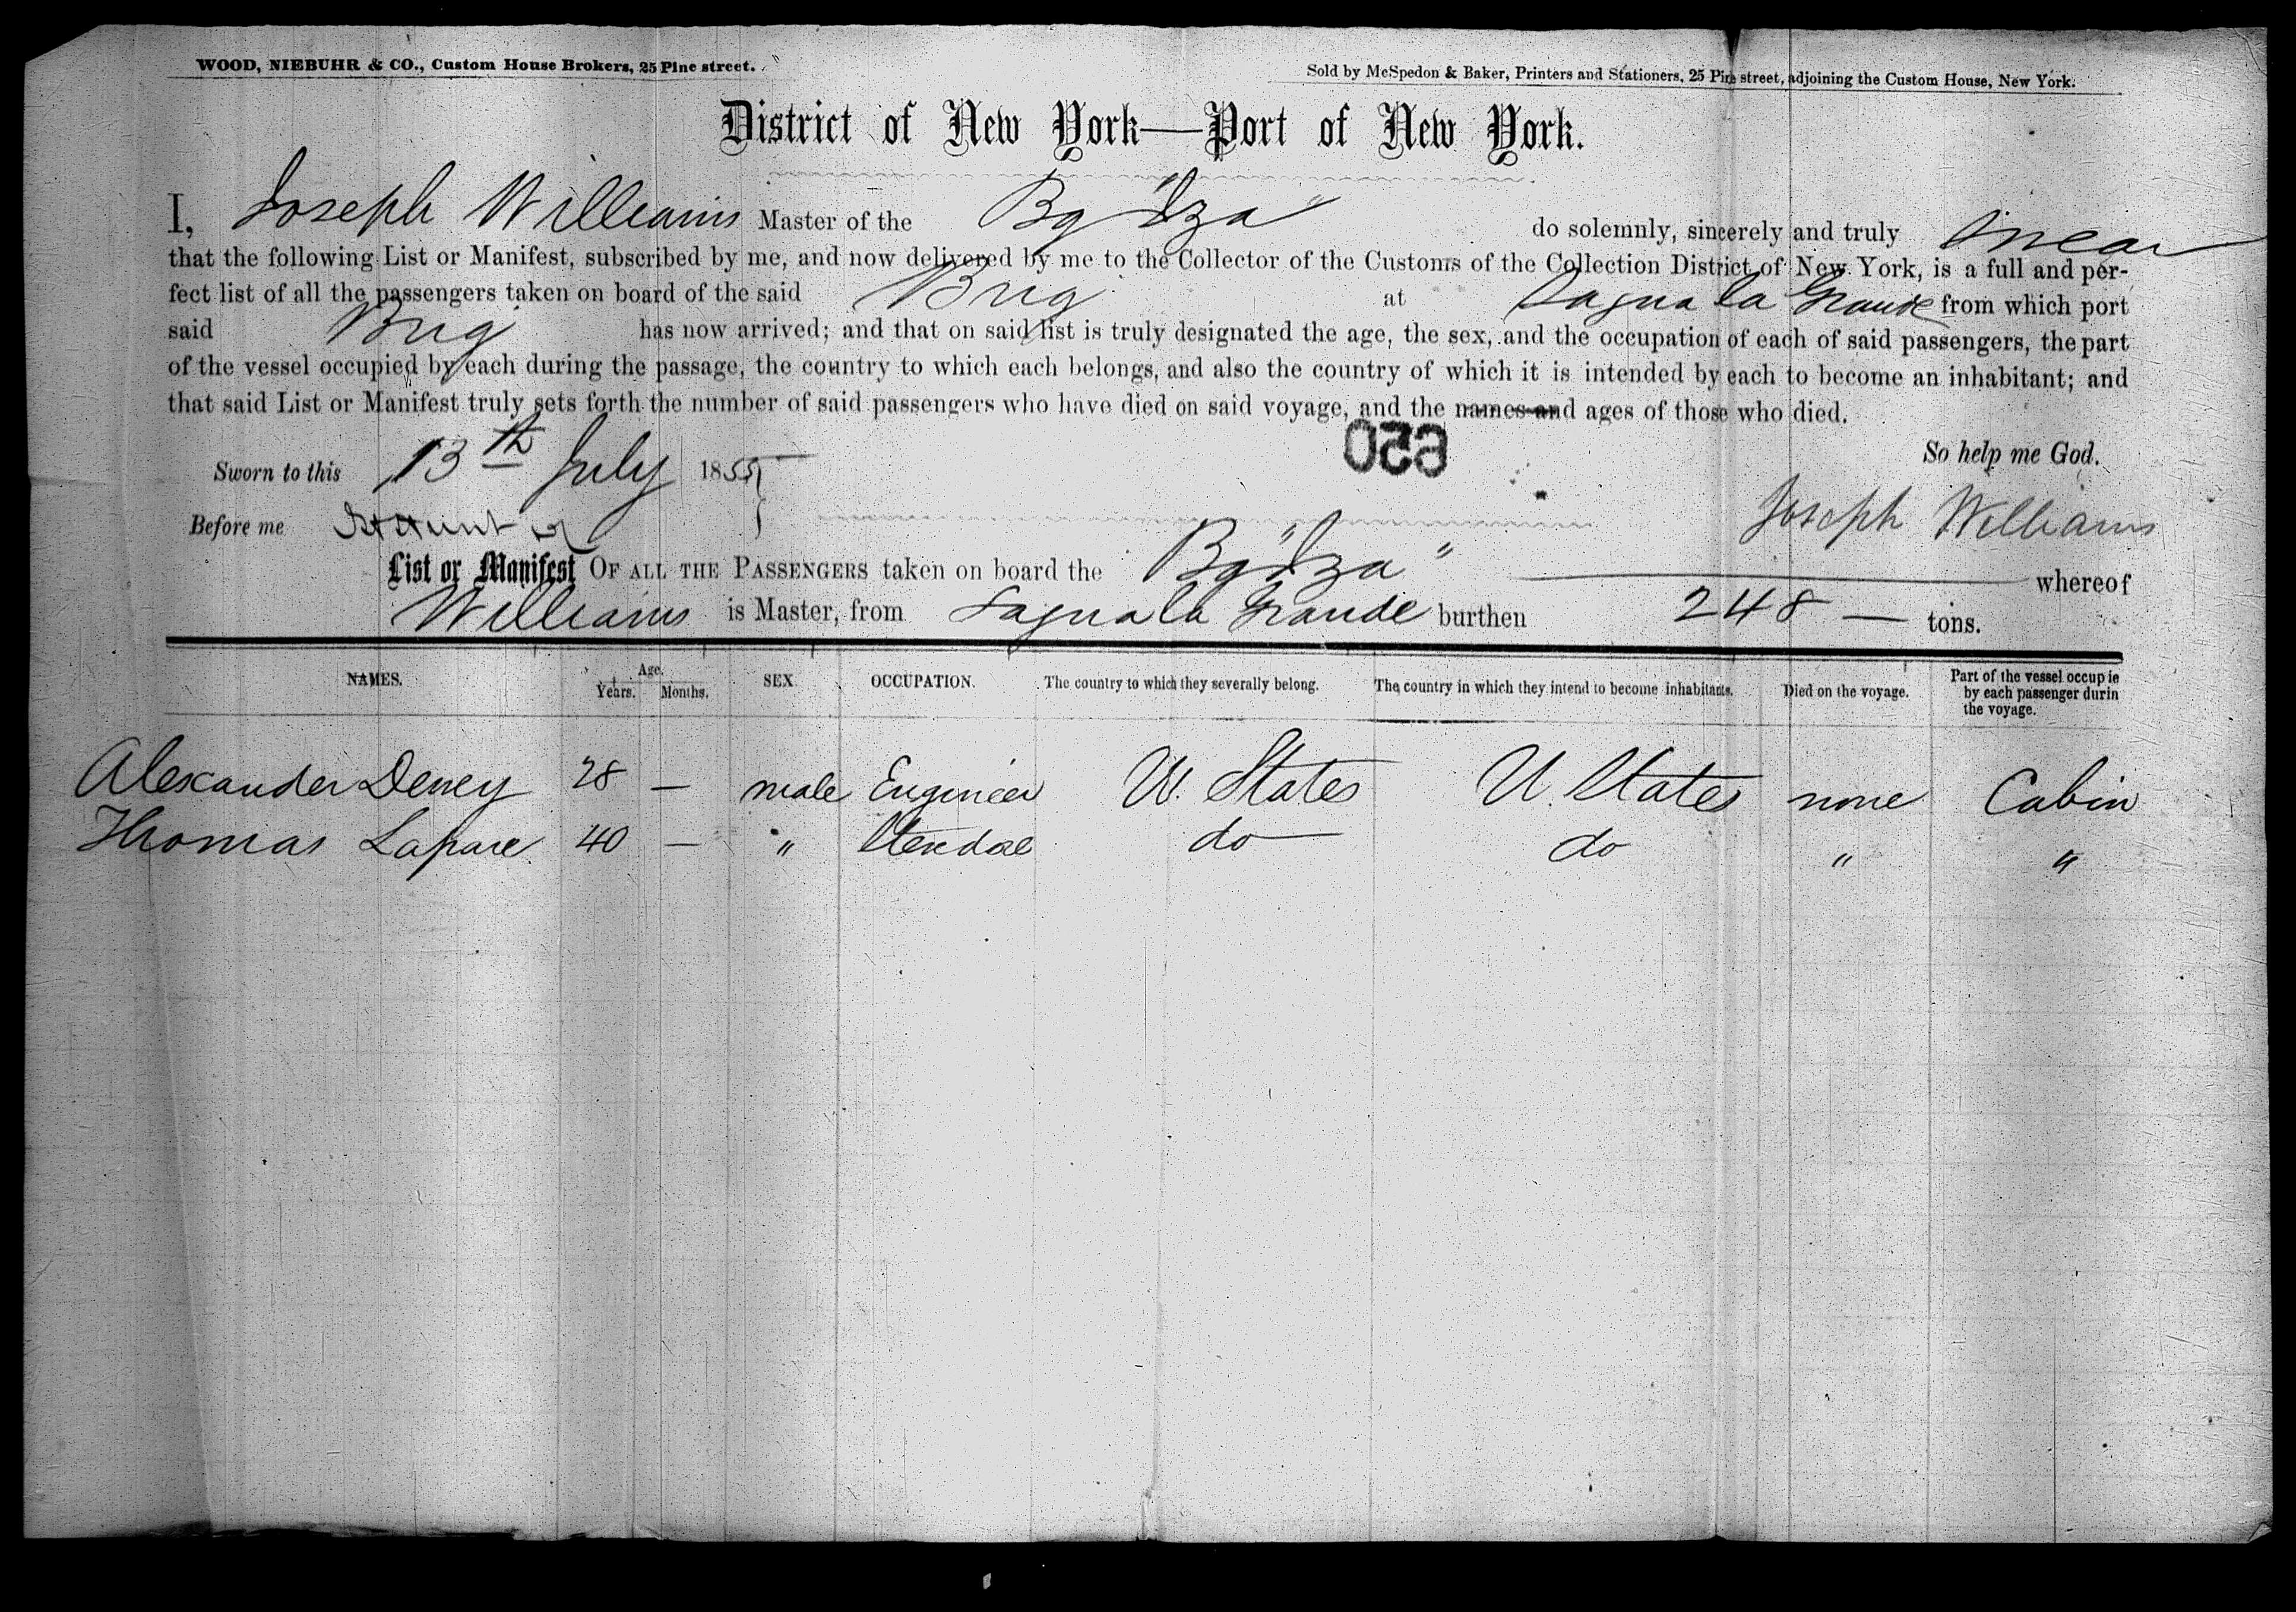 WOOD, NIEBUHR & CO., Custom House Brokers, 25 Pine street.
Sold by McSpedon & Baker, Printers and Stationers, 25 Pine street, adjoining the Custom House, New York.
District of New York—Port of New York.
I, Joseph Williams Master of the Bg "Iza" do solemnly, sincerely and truly swear
that the following List or Manifest, subscribed by me, and now delivered by me to the Collector of the Customs of the Collection District of New York, is a full and per-
fect list of all the passengers taken on board of the said Brig at Sagua la Grande from which port
said Brig has now arrived; and that on said list is truly designated the age, the sex, and the occupation of each of said passengers, the part
of the vessel occupied by each during the passage, the country to which each belongs, and also the country of which it is intended by each to become an inhabitant; and
that said List or Manifest truly sets forth the number of said passengers who have died on said voyage, and the names and ages of those who died.
650
So help me God.
Sworn to this 13th July 1855
Joseph Williams
Before me
List or Manifest OF ALL THE PASSENGERS taken on board the Bg "Iza" whereof
Williams is Master, from Sagua la Grande burthen 248 — tons.
NAMES. Age. Years. Months. SEX. OCCUPATION. The country to which they severally belong. The country in which they intend to become inhabitants. Died on the voyage. Part of the vessel occupie by each passenger durin the voyage.
Alexander Deney 28 — male Engineer U. States U. States none Cabin
Thomas Lapare 40 — " do do " "